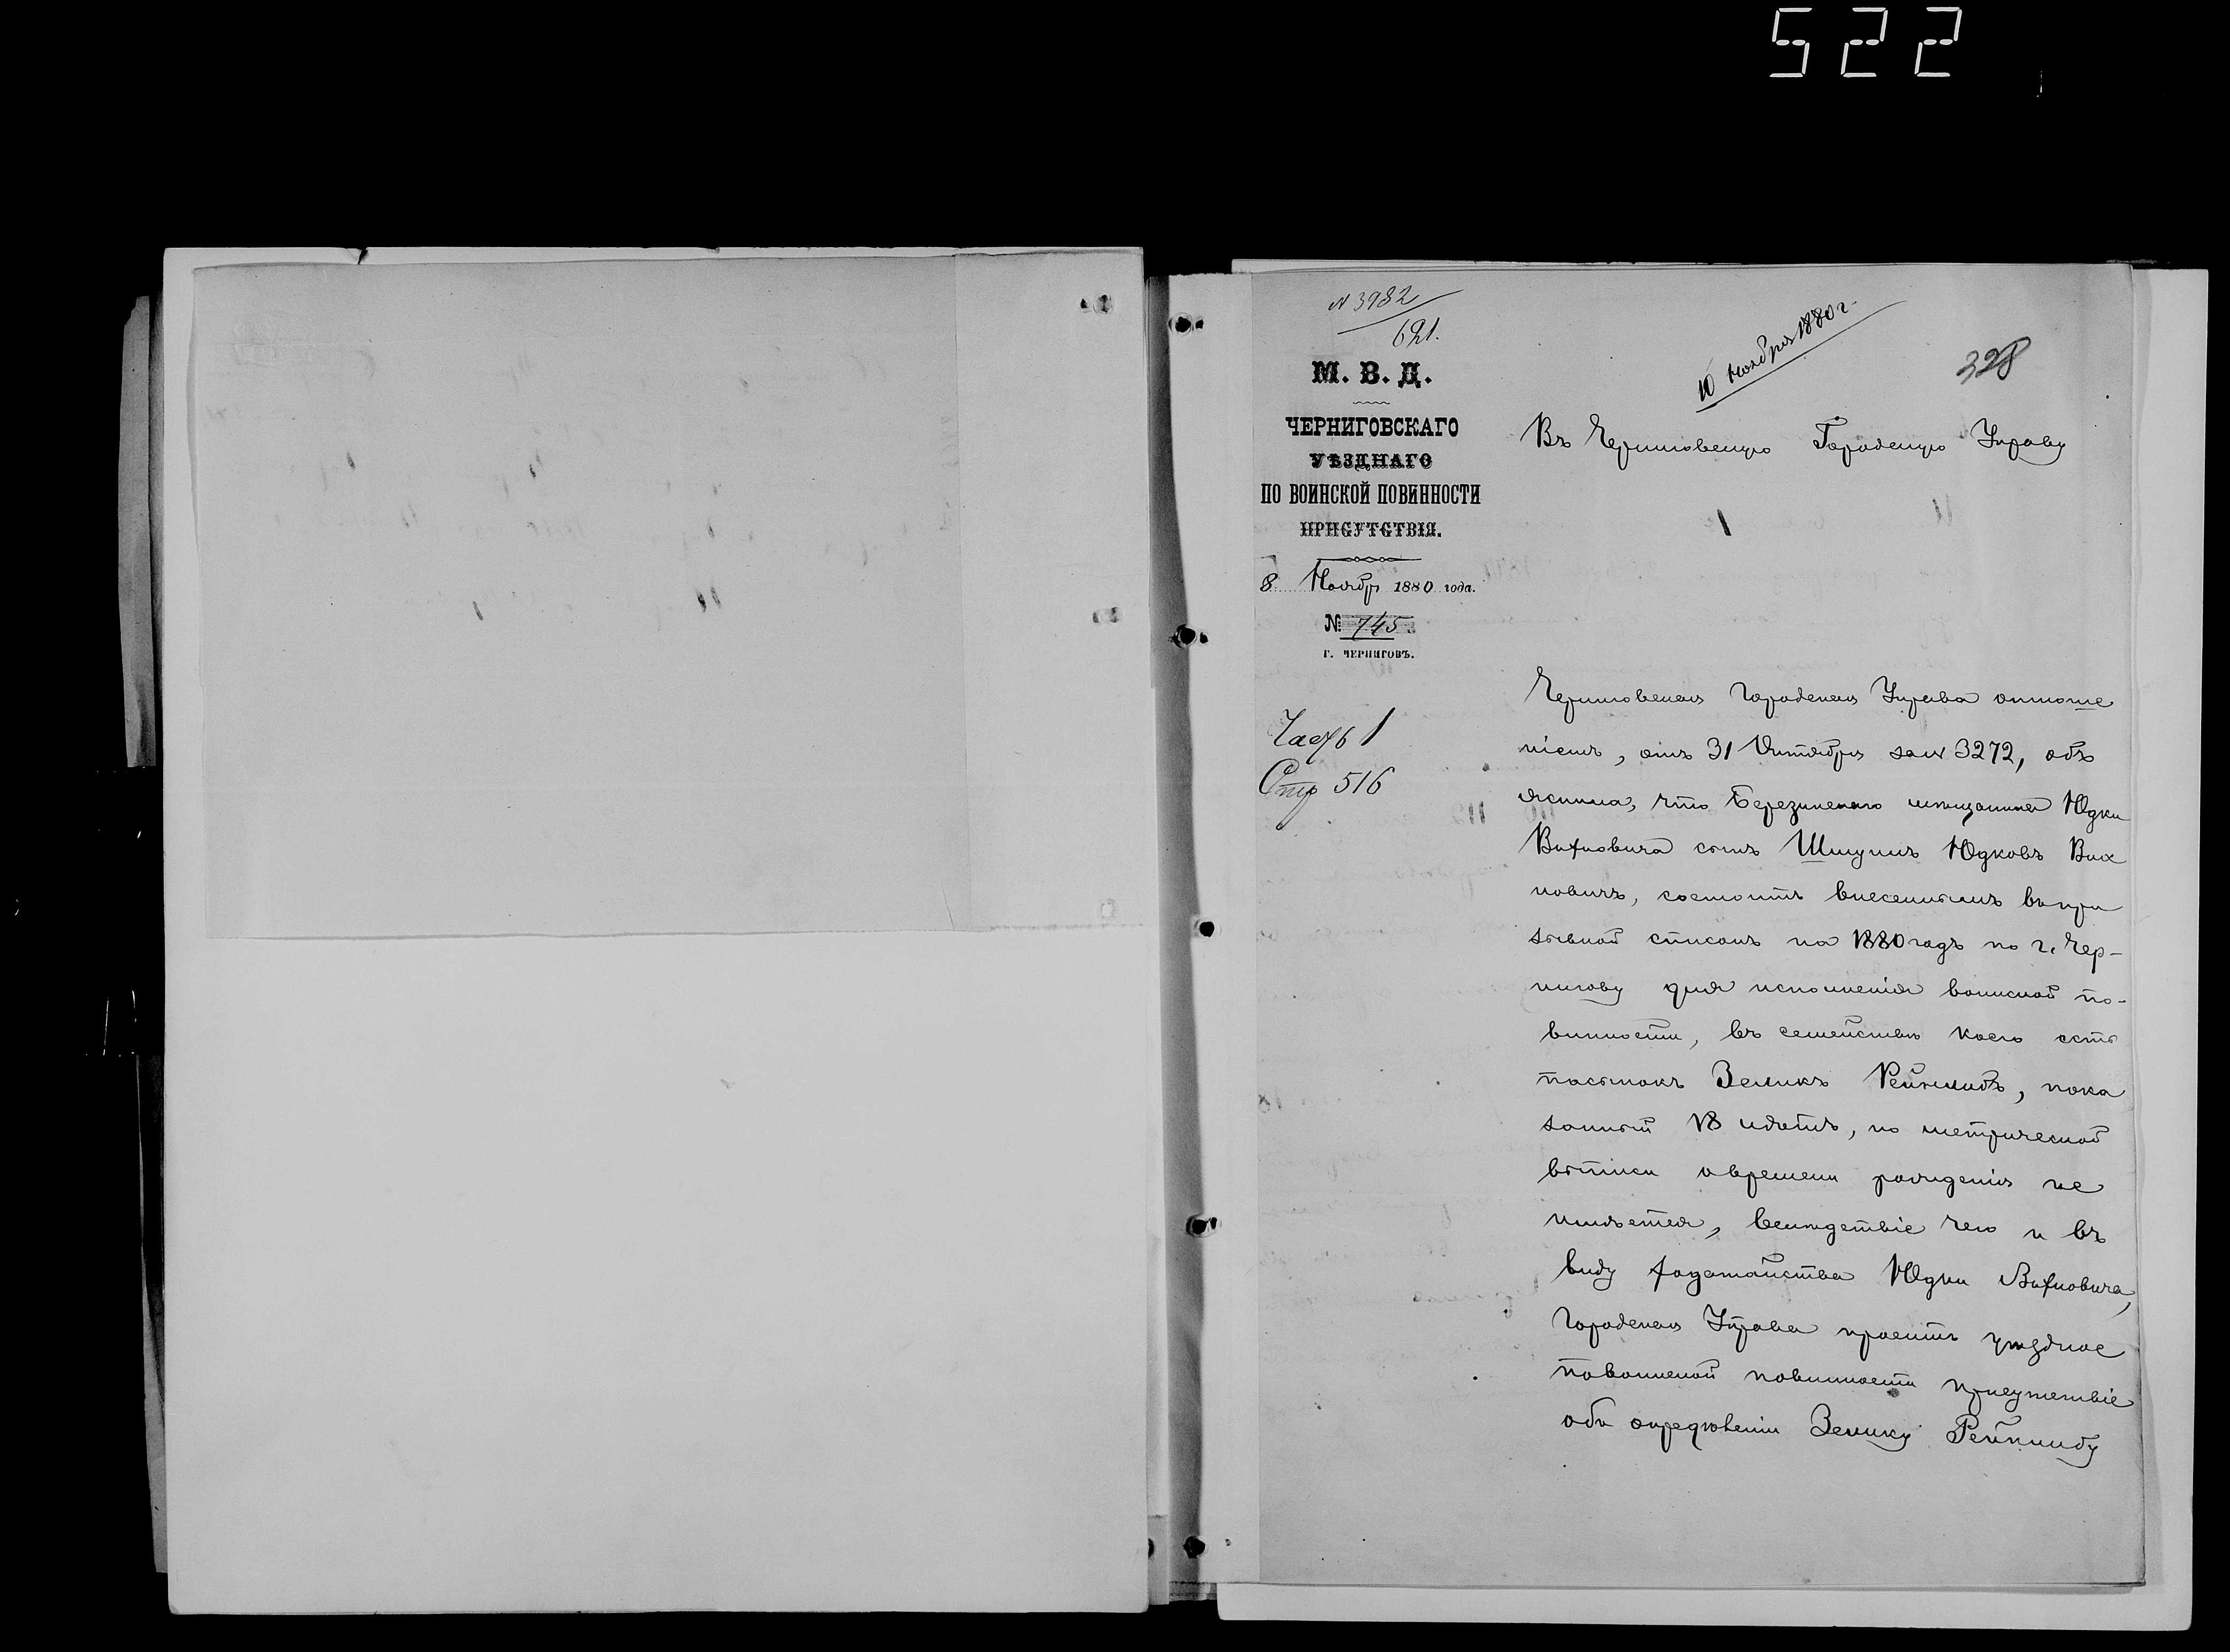 522
N 3982
621.
10 Ноября 1880 г.
328
М. В. Д.
ЧЕРНИГОВСКАГО
УѢЗДНАГО
ПО ВОИНСКОЙ ПОВИННОСТИ
ПРИСУТСТВІЯ.
8 Ноябр 1880 года.
№ 745
Г. ЧЕРНИГОВЪ.
Часть 1
Стр 516
Въ Черниговскую Городскую Управу
Черниговская Городская Управа отноше
ніемъ, отъ 31 Октября за N 3272, объ
яснила, что Березинскаго мещанина Юдки
Вихновича сынъ Шмуилъ Юдковъ Вих
новичъ, состоитъ внесеннымъ въ при
зывной списокъ на 1880 годъ по г. Чер-
нигову для исполненія воинской по-
винности, въ семействѣ коего есть
пасынокъ Зеликъ, пока
занный 18 лѣтъ, но метрической
выписи о времени рожденія не
имѣется, вслѣдствіе чего и въ
виду ходатайства Юдки Вихновича,
Городская Управа проситъ уѣздное
по воинской повинности присутствіе
объ опредѣленіи Зелику